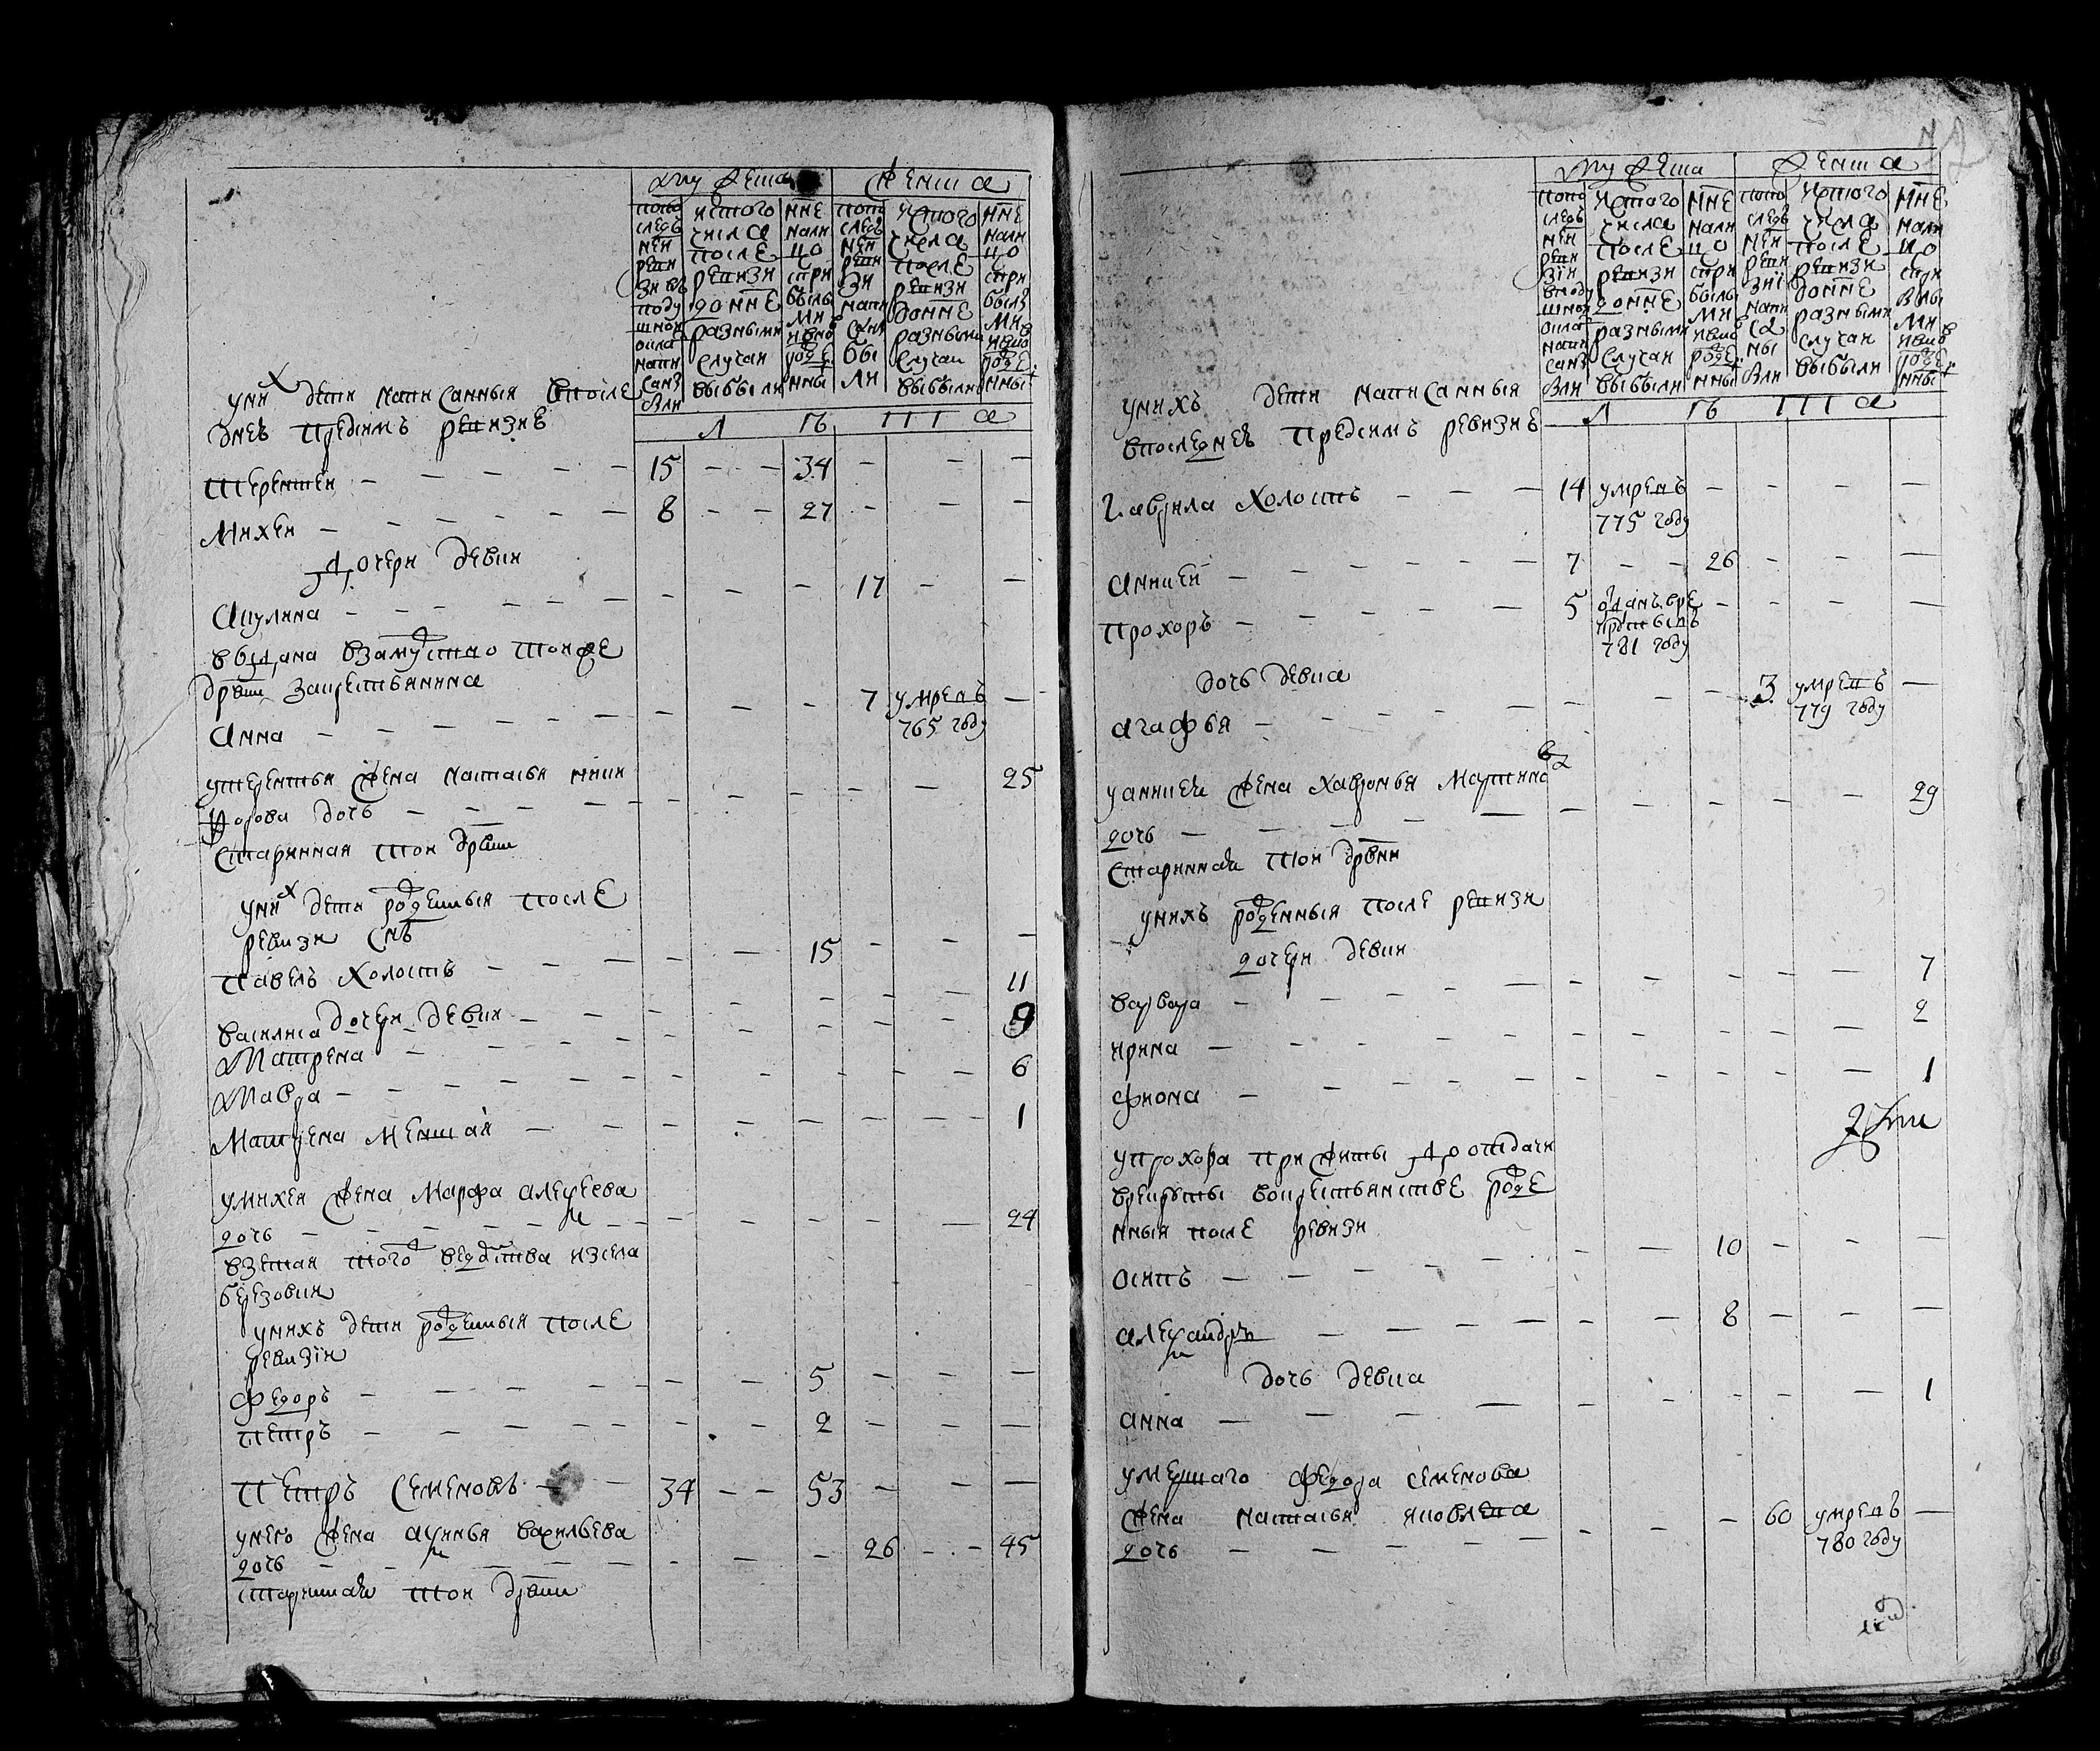 72
Мужеска Женска
по последней ревизии в подушной оклад написанъ были
ис того числа после ревизи до нне разными случаи выбыли
нне на лицо с прибылыми и вновь рожденны
по последней ревизи написаны были
ис того числа после ревизи до нне разными случаи выбыли
нне на лицо с прибылыми и вновь рожденны
Л ѣ т а
у них дети написанныя в после
днеѣ пред симъ ревизиѣ
Терентей — — — 15 — — 34 — — —
Михей — — — 8 — — 27 — — —
дочери девки
Акулина — — — — — — 17 — —
выдана в замужство той же
дрвни за крестьянина
Анна — — — — — — 7 умре въ —
765 году
у Терентья жена Наталья Ники
форова дочь — — — — — — 25
старинная той дрвни
у них дети рожденныя после
ревизи снъ
Павелъ холостъ — — — 15 — — —
дочери девки
Василиса — — — 11
Матрена — — — 9
Мавра — — — 6
Матрена меншая — — — 1
у Михея жена Марфа Алексеева
дочь — — — 24
взетая того ведомства из села
Березовки
у нихъ дети рожденыя после
ревизiи
Федоръ — — — 5 — — —
Петръ — — — 2 — — —
Петръ Семеновъ — — 34 — — 53 — — —
у него жена Аксинья Васильева
дочь — — — 26 — — 45
стариннаꙗ той дрвни
Мужеска Женска
по последней ревизiи в подушной оклад написанъ были
ис того числа после ревизи до нне разными случаи выбыли
нне на лицо с прибылыми и вновь рожденны
по последней ревизиї написаны были
ис того числа после ревизи до нне разными случаи выбыли
нне на лицо с прибылыми и вновь рожденны
Л ѣ т а
у нихъ дети написанныя
в последнеѣ пред симъ ревизиѣ
Гаврила холостъ — — — 14 умре въ — — — —
775 году
Аникей — — — 7 — — 26 — — —
Прохоръ — — — 5 отданъ в ре — — — —
круты въ
781 году
дочь девка
Агафья — — — 3 умре въ —
779 году
у Аникеꙗ жена Хавронья Мартинова
дочь — — — 29
стариннаꙗ той дрвни
у нихъ рожденныя после ревизи
дочери девки
Варвара — — — 7
Ирина — — — 2
Фиона — — — 1
у Прохора прижиты до отдачи
в рекруты в крестьянстве рожде
нныя после ревизи
Осипъ — — — 10 — — —
Александръ — — — 8 — — —
дочь девка
Анна — — — 1
умершаго Федора Семенова
жена Наталья Яковлева
дочь — — — 60 умре въ —
780 году